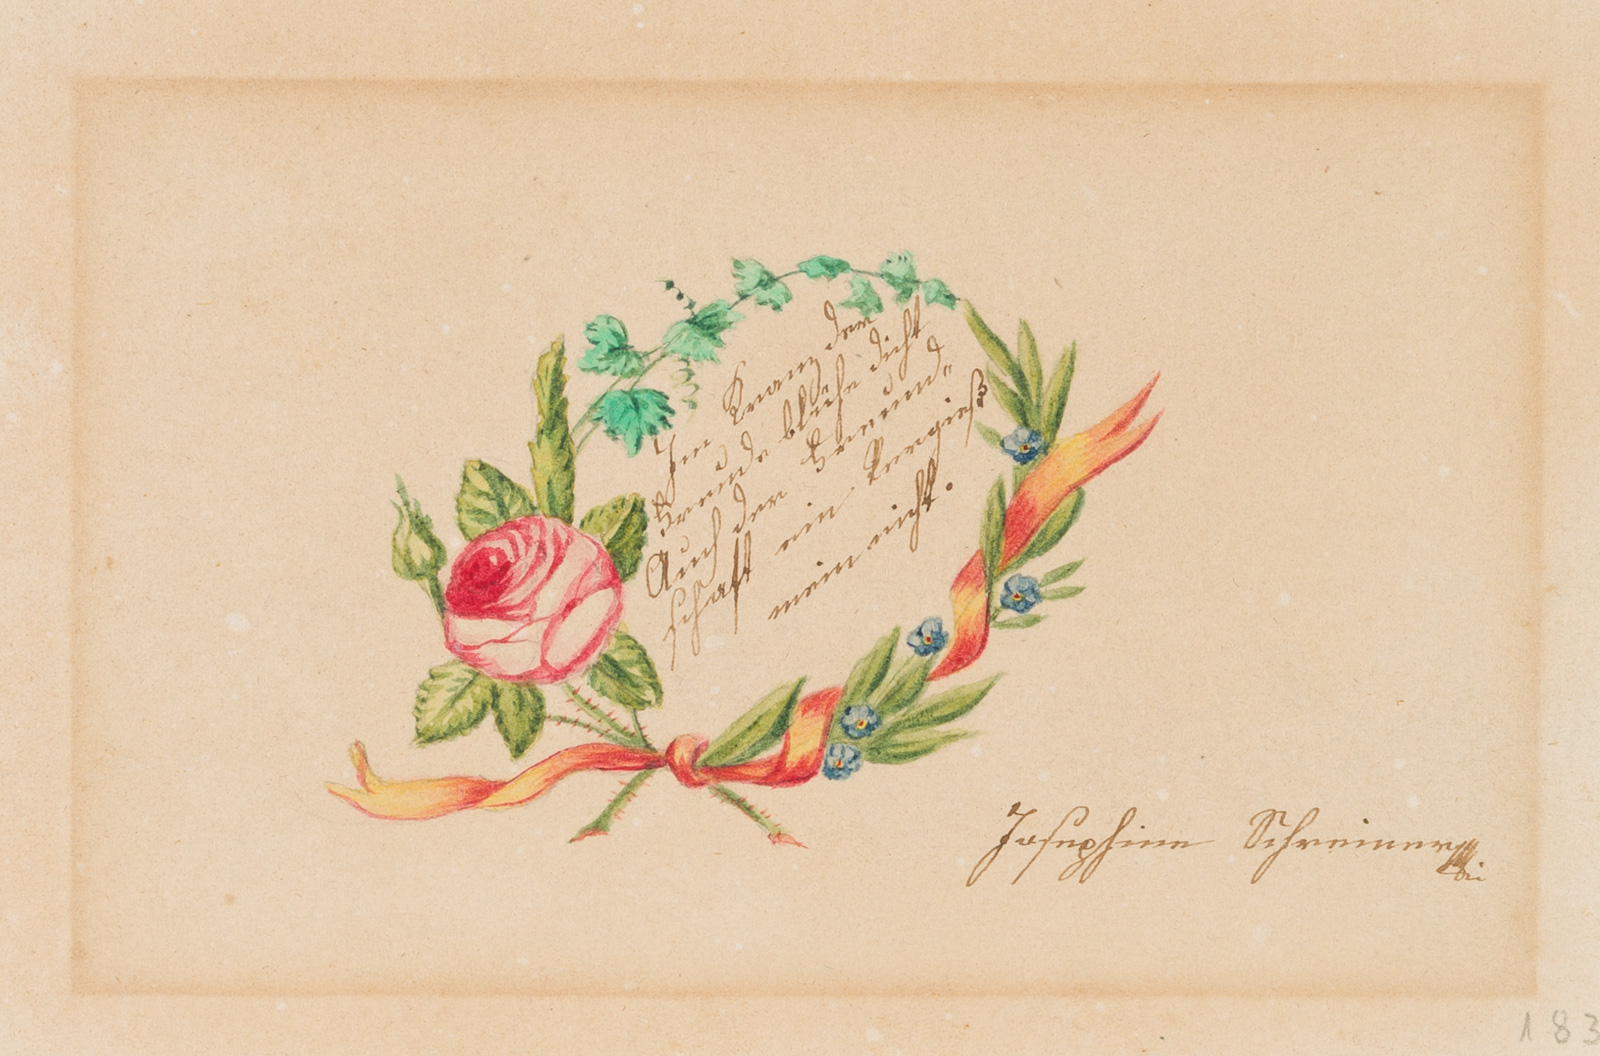 Im Kranz der
Freude blühe dicht
Auch der Freund-
schaft ein Vergieß
mein nicht.
Josephine Schreiner
183